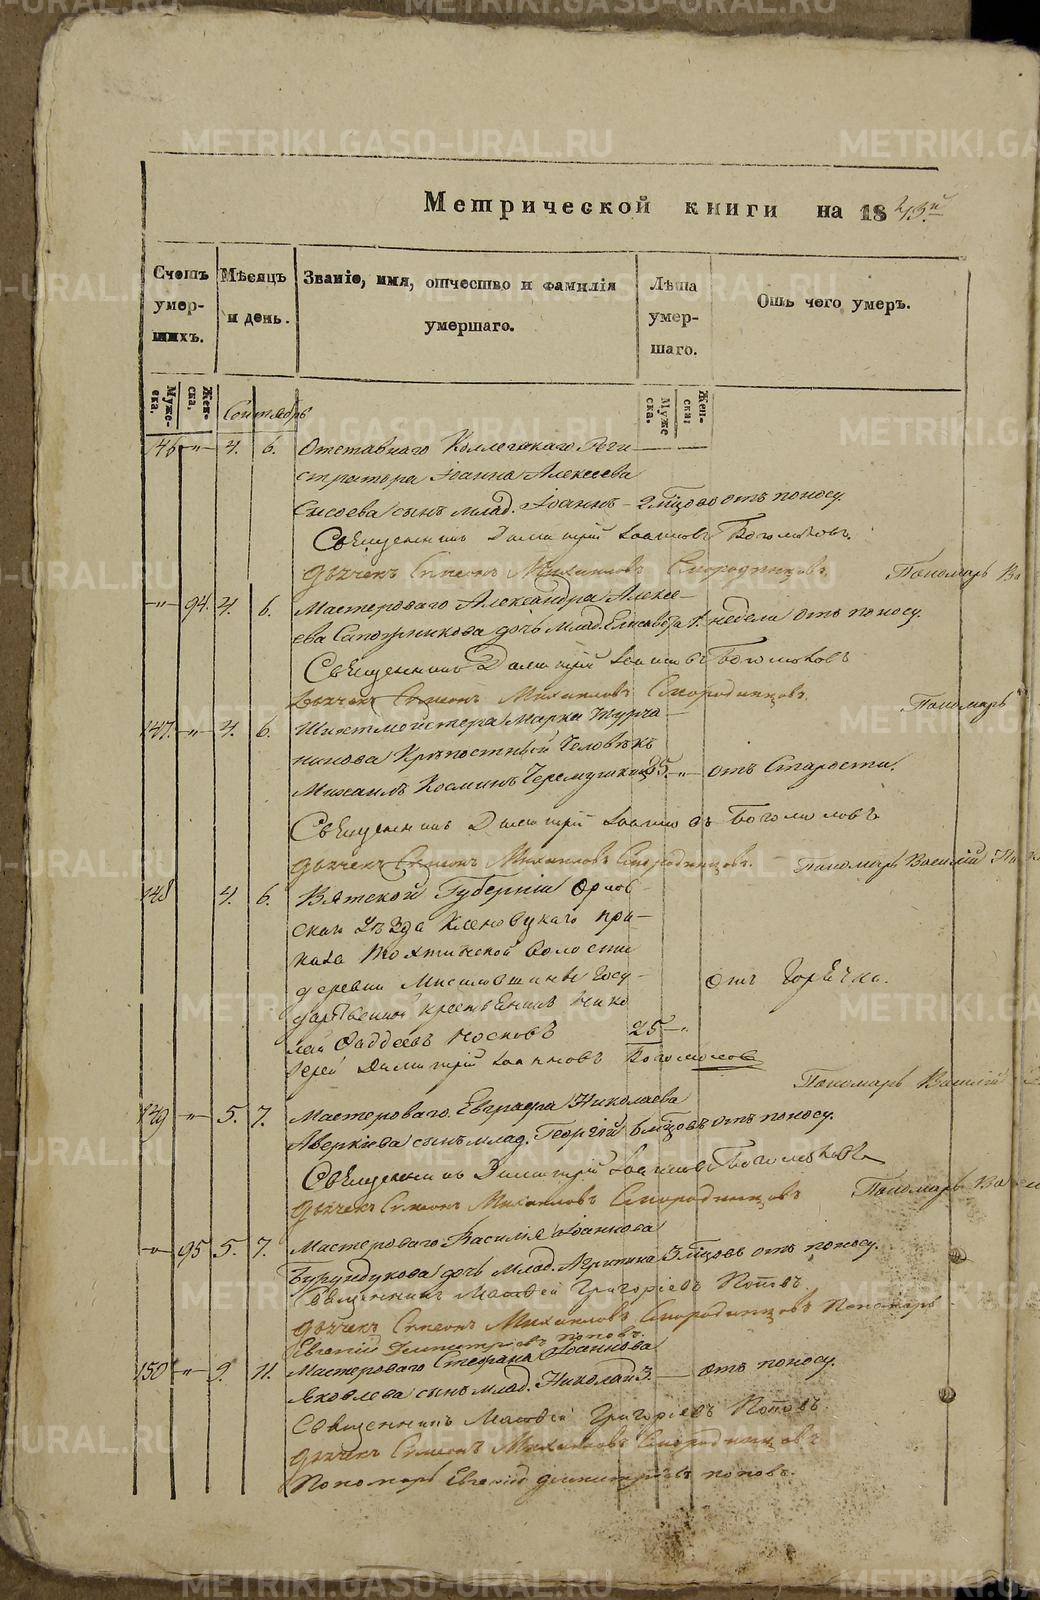 Метрической книги на 1843й
Счетъ умершихъ.
Мѣсяцъ и день.
Званіе, имя, отчество и фамилія умершаго.
Лѣта умершаго.
Отъ чего умеръ.
Мужеска. Женска. Сентябрь Мужеска Женска:
146 — " — 4. 6. Отставнаго Коллежскаго Реги-
стратора Іоанна Алексеева
Сысоева сынъ млад. Іоаннъ - 2 мѣсцовъ отъ поносу
Священникъ Димитрій Іоанновъ Боголюбовъ.
Дьячекъ Симеонъ Михаиловъ Смородинцовъ. Пономарь Ва
— " — 94. 4. 6. Мастероваго Александра Алексе-
ева Сапожникова дочь млад. Елисавета 1. недели отъ поносу.
Священникъ Димитрій Іоанновъ Боголюбовъ
Дьячекъ Симеонъ Михаиловъ Смородинцовъ. Пономарь
147. — " — 4. 6. Шихтмейстера Марка Турча-
нинова Крѣпостный человѣкъ
Михаилъ Косминъ 85. — " — отъ Старости.
Священникъ Димитрій Іоанновъ Боголюбовъ
Дьячекъ Симеонъ Михаиловъ Смородинцовъ. Пономарь Василій
148 4. 6. Вятской Губерніи Орлов-
скаго Уѣзда при-
каза волости
деревни Госу-
дарственный крестьянинъ Нико
лай Фаддеевъ Носковъ 25 — " отъ Горячки.
Іерей Димитрій Іоанновъ Боголюбовъ
Пономарь Василій
149 — " — 5. 7. Мастероваго Евграфа Николаева
Аверкіева сынъ млад. Георгій 6 мѣсцовъ отъ поносу.
Священникъ Димитрій Іоанновъ Боголюбовъ
Дьячекъ Симеонъ Михаиловъ Смородинцовъ Пономарь Васи
— " — 95 5. 7. Мастероваго Василія Іоаннова
Бурундукова дочь млад. Агрипина 3 мѣсцовъ отъ поносу.
Священникъ Матфей Григоріевъ Поповъ
Дьячекъ Симеонъ Михаиловъ Смородинцовъ Пономарь
Евгеній Димитріевъ поповъ.
150 — " — 9. 11. Мастероваго Стефана Іоаннова
Яковлева сынъ млад. Николай 3. — отъ поносу.
Священникъ Матфей Григоріевъ Поповъ
Дьячекъ Симеонъ Михаиловъ Смородинцовъ
Пономарь Евгеній Димитріевъ поповъ.